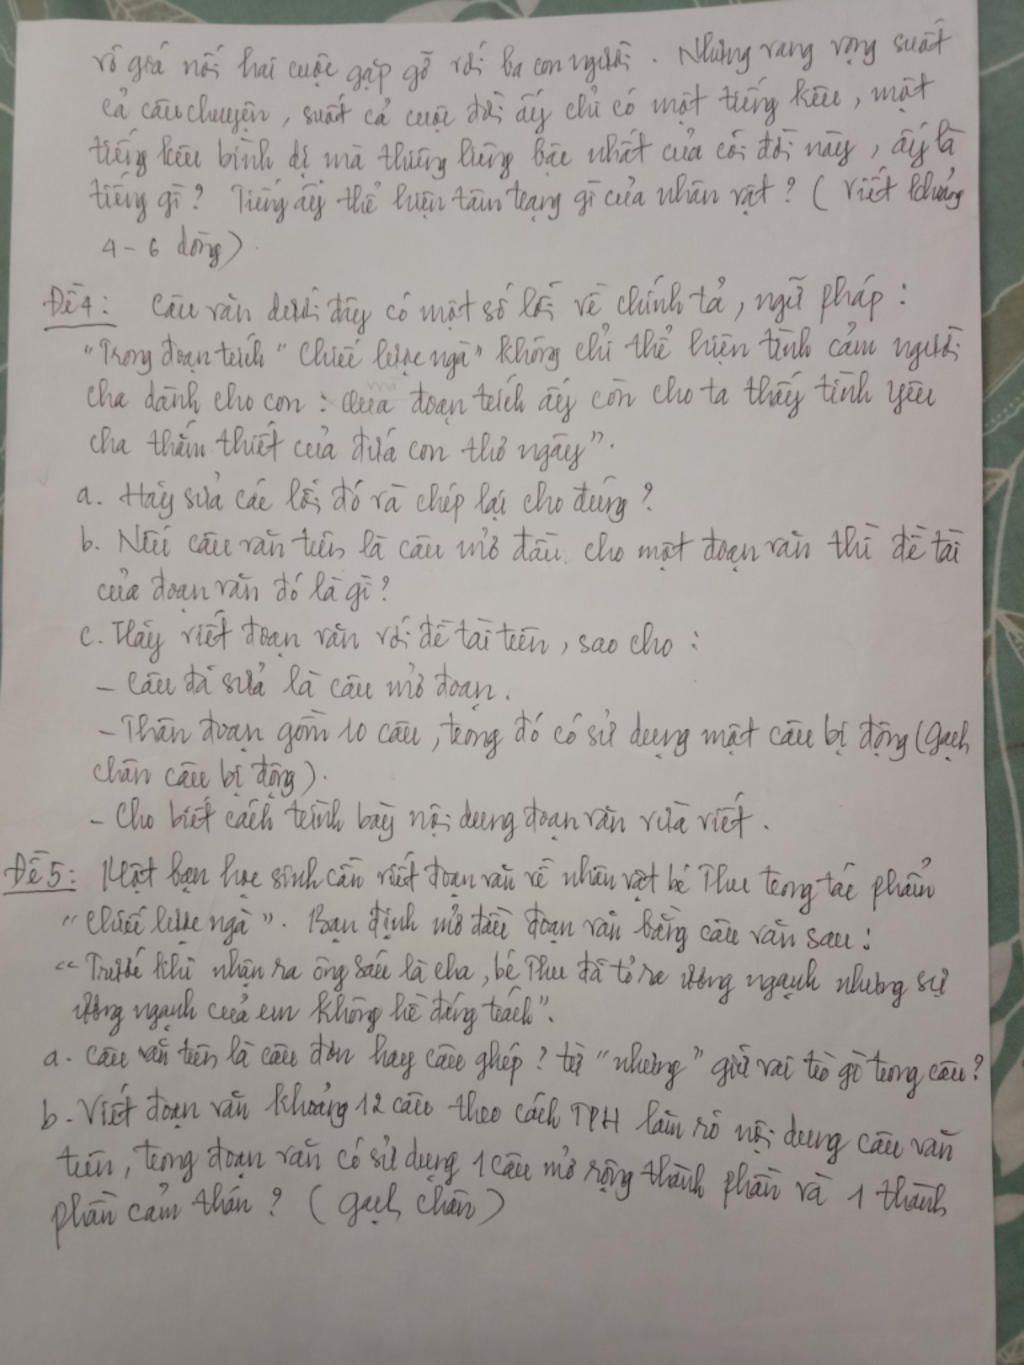 vô giá nối hai cuộc gặp gỡ với ba con người. Nhưng vang vọng suốt
cả câu chuyện, suốt cả cuộc đời ấy chỉ có một tiếng kêu, một
tiếng kêu bình dị mà thiêng liêng bậc nhất của cõi đời này, ấy là
tiếng gì? Tiếng ấy thể hiện tâm trạng gì của nhân vật? (Viết khoảng
4-6 dòng).
Đề 4: Câu văn dưới đây có một số lỗi về chính tả, ngữ pháp:
"Trong đoạn trích "Chiếc lược ngà" không chỉ thể hiện tình cảm người
cha dành cho con: Qua đoạn trích ấy còn cho ta thấy tình yêu
cha thắm thiết của đứa con thơ ngây".
a. Hãy sửa các lỗi đó và chép lại cho đúng?
b. Nếu câu văn trên là câu mở đầu cho một đoạn văn thì đề tài
của đoạn văn đó là gì?
c. Hãy viết đoạn văn với đề tài trên, sao cho:
- Câu đã sửa là câu mở đoạn.
- Thân đoạn gồm 10 câu, trong đó có sử dụng một câu bị động (gạch
chân câu bị động).
- Cho biết cách trình bày nội dung đoạn văn vừa viết.
Đề 5: Một bạn học sinh cần viết đoạn văn về nhân vật bé Thu trong tác phẩm
"Chiếc lược ngà". Bạn định mở đầu đoạn văn bằng câu văn sau:
"Trước khi nhận ra ông Sáu là cha, bé Thu đã tỏ ra ương ngạnh nhưng sự
ương ngạnh của em không hề đáng trách".
a. Câu văn trên là câu đơn hay câu ghép? từ "nhưng" giữ vai trò gì trong câu?
b. Viết đoạn văn khoảng 12 câu theo cách TPH làm rõ nội dung câu văn
trên, trong đoạn văn có sử dụng 1 câu mở rộng thành phần và 1 thành
phần cảm thán? (gạch chân)